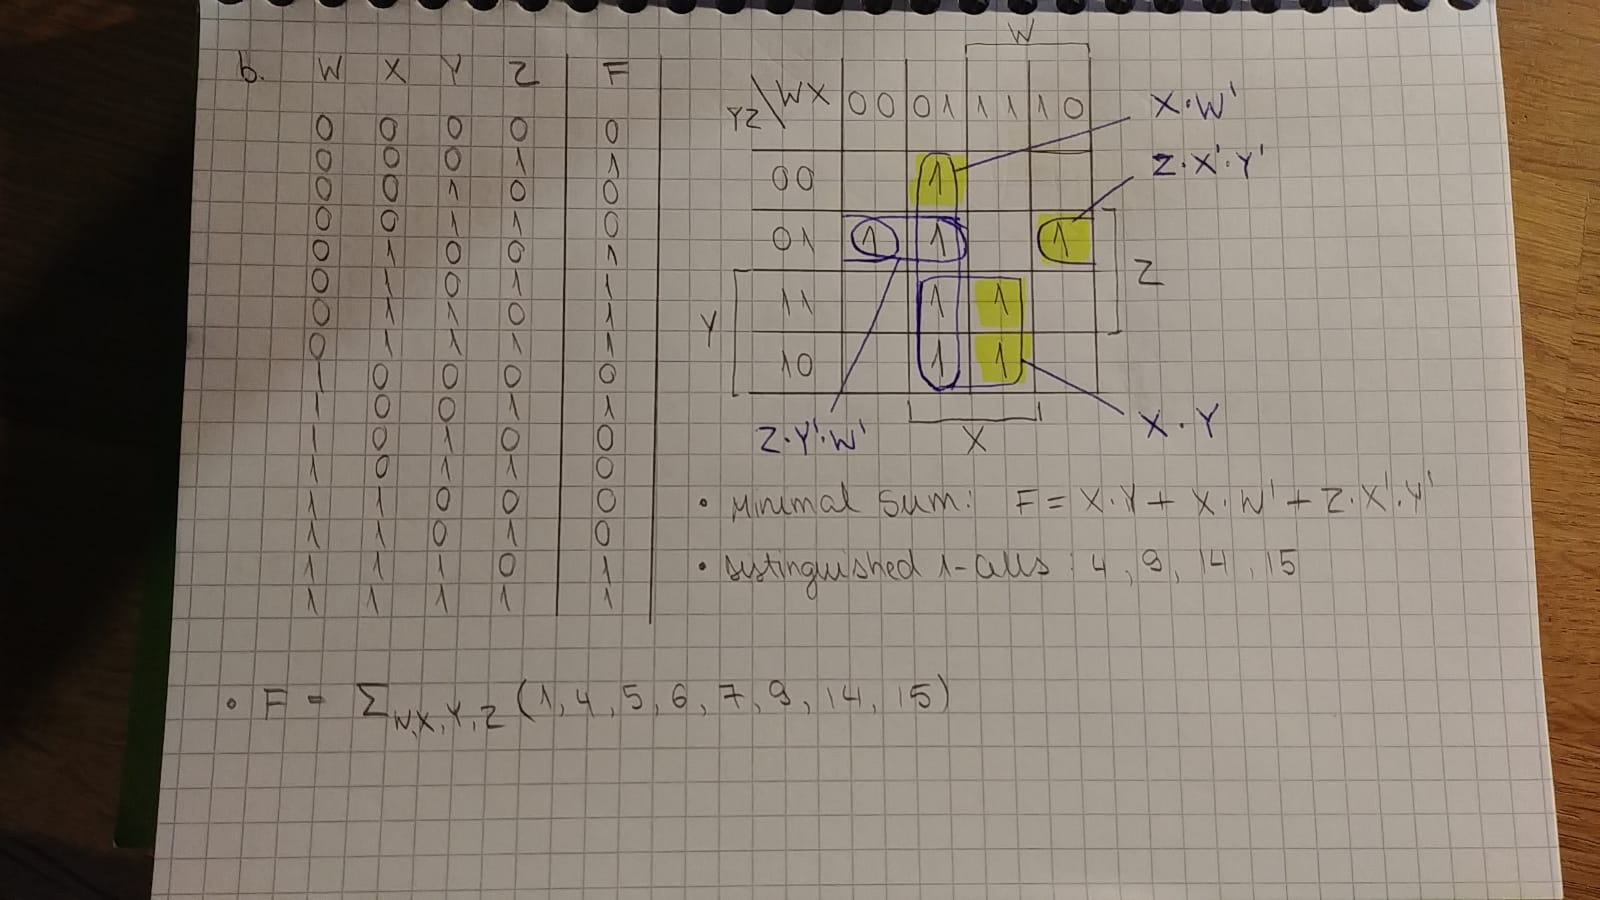 b. W X Y Z F
0 0 0 0 0
0 0 0 1 1
0 0 1 0 0
0 0 1 1 0
0 1 0 0 1
0 1 0 1 1
0 1 1 0 1
0 1 1 1 1
1 0 0 0 0
1 0 0 1 1
1 0 1 0 0
1 0 1 1 0
1 1 0 0 0
1 1 0 1 0
1 1 1 0 1
1 1 1 1 1
W
YZ\WX 00 01 11 10
00 1
01 1 1 1
11 1 1
10 1 1
X·W'
Z·X'·Y'
Z
Y
Z·Y'·W'
X
X·Y
• Minimal sum: F = X·Y + X·W' + Z·X'·Y'
• distinguished 1-cells: 4, 9, 14, 15
• F = Σ W,X,Y,Z (1, 4, 5, 6, 7, 9, 14, 15)